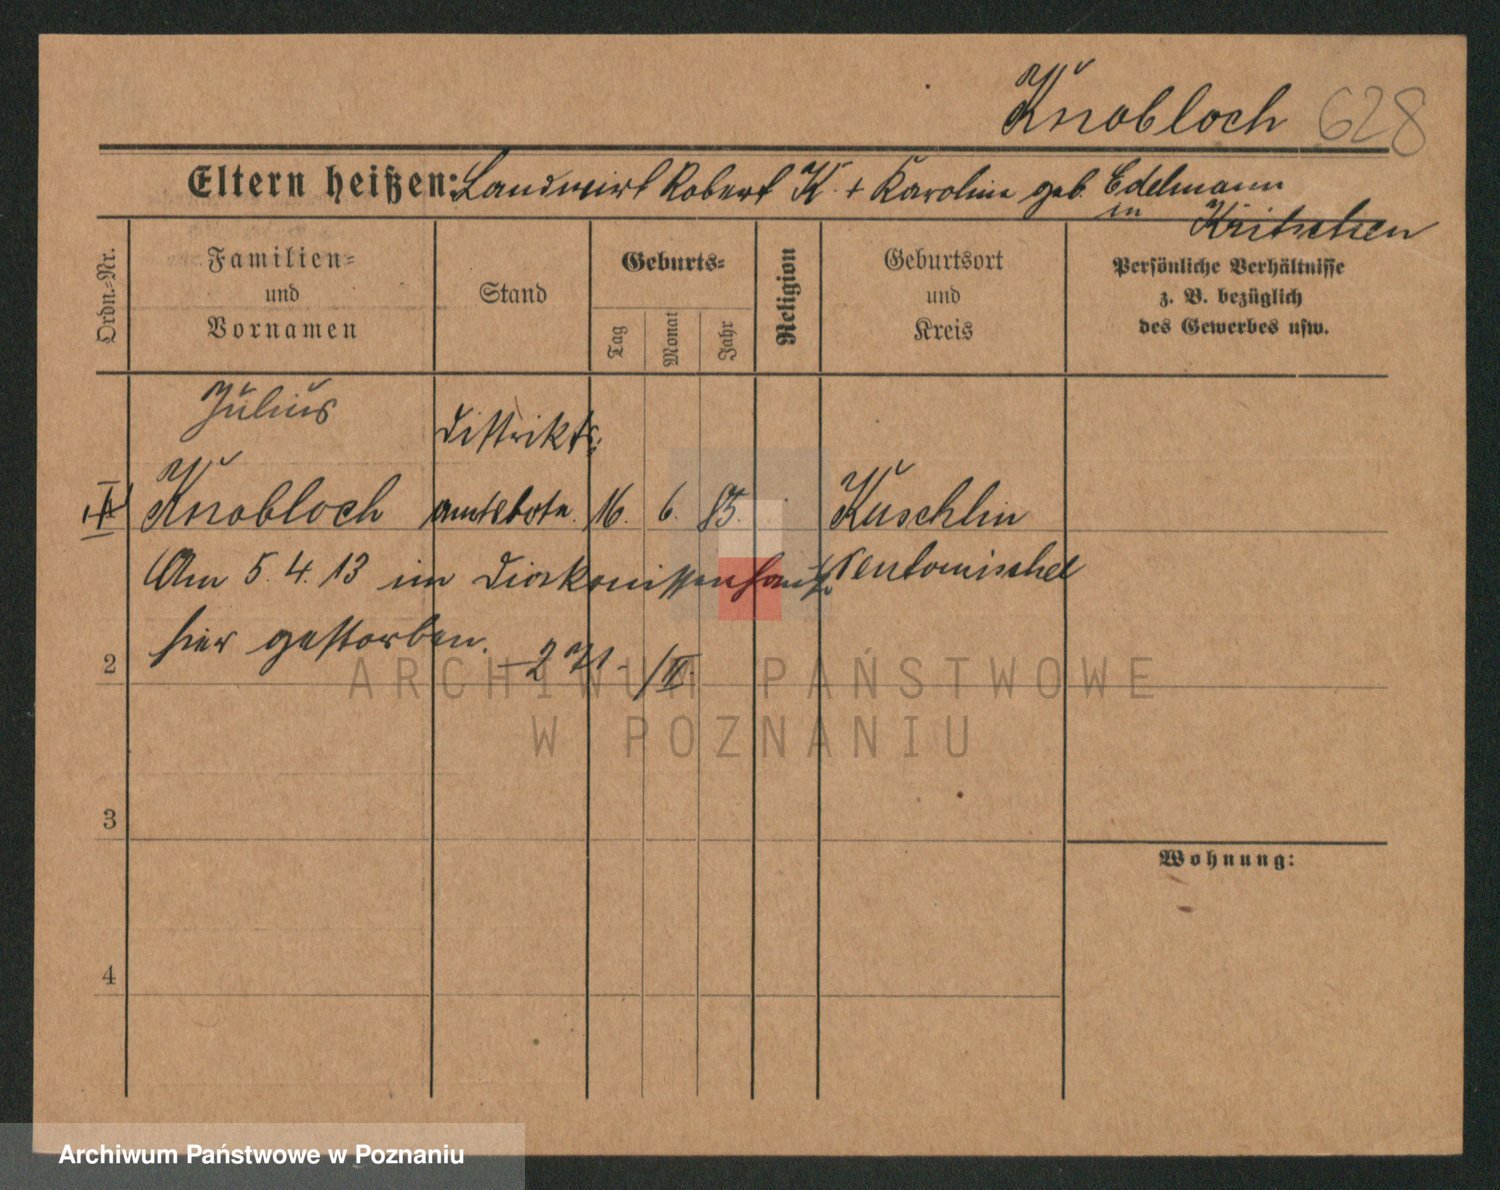 Knobloch 628
Eltern heißen: Landwirt Robert K. + Karoline geb. Edelmann
in Kritschen
Ordn.=Nr.
Familien=
und
Vornamen
Stand
Geburts=
Tag
Monat
Jahr
Religion
Geburtsort
und
Kreis
Persönliche Verhältnisse
z. B. bezüglich
des Gewerbes usw.
Julius Distrikts=
Knobloch amtsbote. 16. 6. 85. Kuschlin
Am 5.4.13 im Diakonissenhause Neutomischel
hier gestorben. - 271 - /II.
2
3
4
Wohnung:
ARCHIWUM PAŃSTWOWE
W POZNANIU
Archiwum Państwowe w Poznaniu